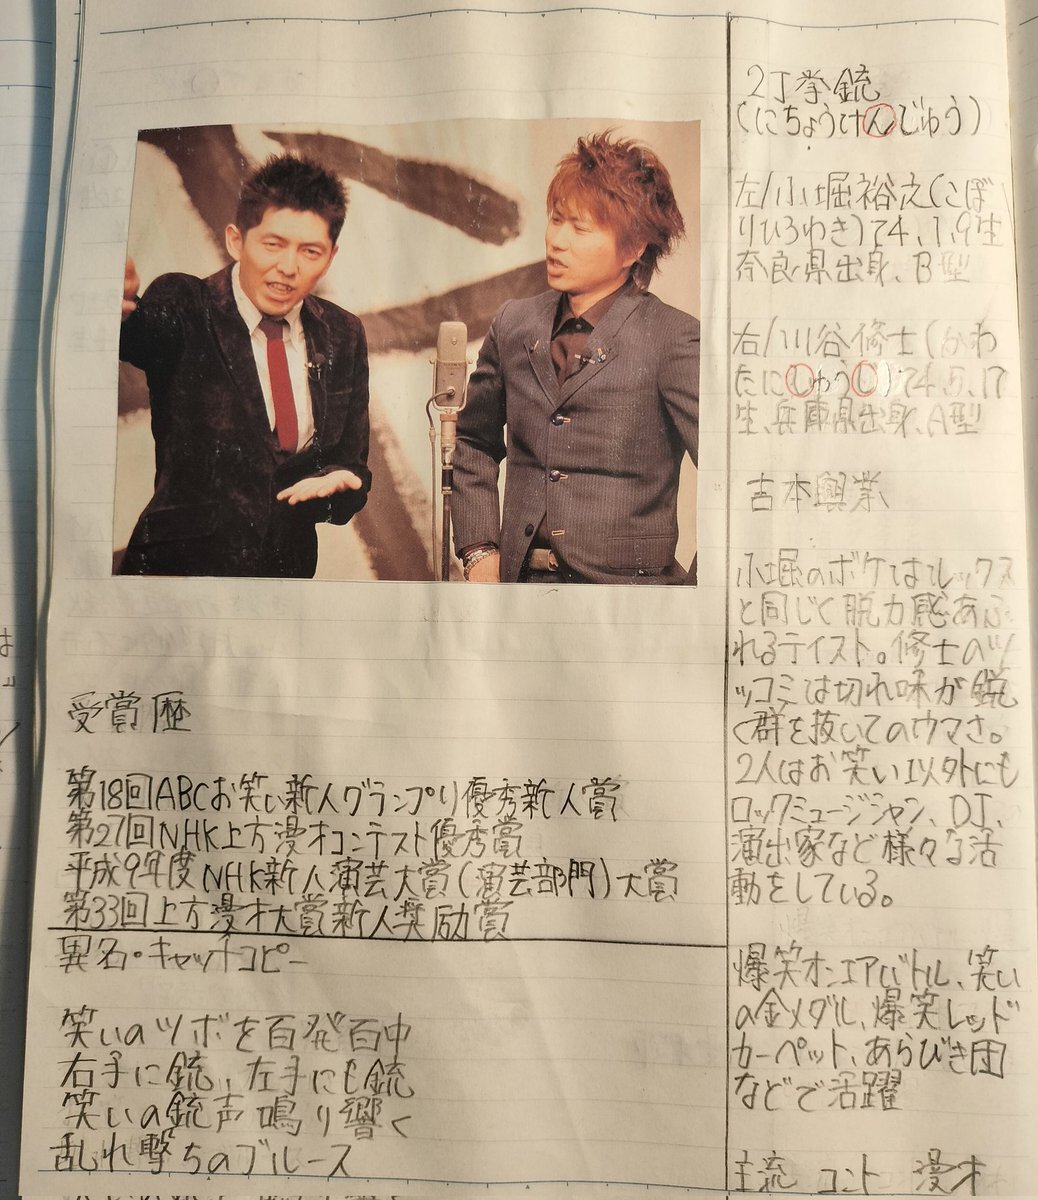 2丁拳銃
(にちょうけんじゅう)
左/小堀裕之(こぼ
りひろゆき)74.1.9生
奈良県出身、B型
右/川谷修士(かわ
たにしゅうじ)74.5.17
生、兵庫県出身、A型
吉本興業
小堀のボケはルックス
と同じく脱力感あふ
れるテイスト。修士のツ
ッコミは切れ味が鋭
く群を抜いてのウマさ。
2人はお笑い以外にも
ロックミュージシャン、DJ、
演出家など様々な活
動をしている。
爆笑オンエアバトル、笑い
の金メダル、爆笑レッド
カーペット、あらびき団
などで活躍
主流 コント 漫才
受賞歴
第18回ABCお笑い新人グランプリ優秀新人賞
第27回NHK上方漫才コンテスト優秀賞
平成9年度NHK新人演芸大賞(演芸部門)大賞
第33回上方漫才大賞新人奨励賞
異名・キャッチコピー
笑いのツボを百発百中
右手に銃、左手にも銃
笑いの銃声鳴り響く
乱れ撃ちのブルース